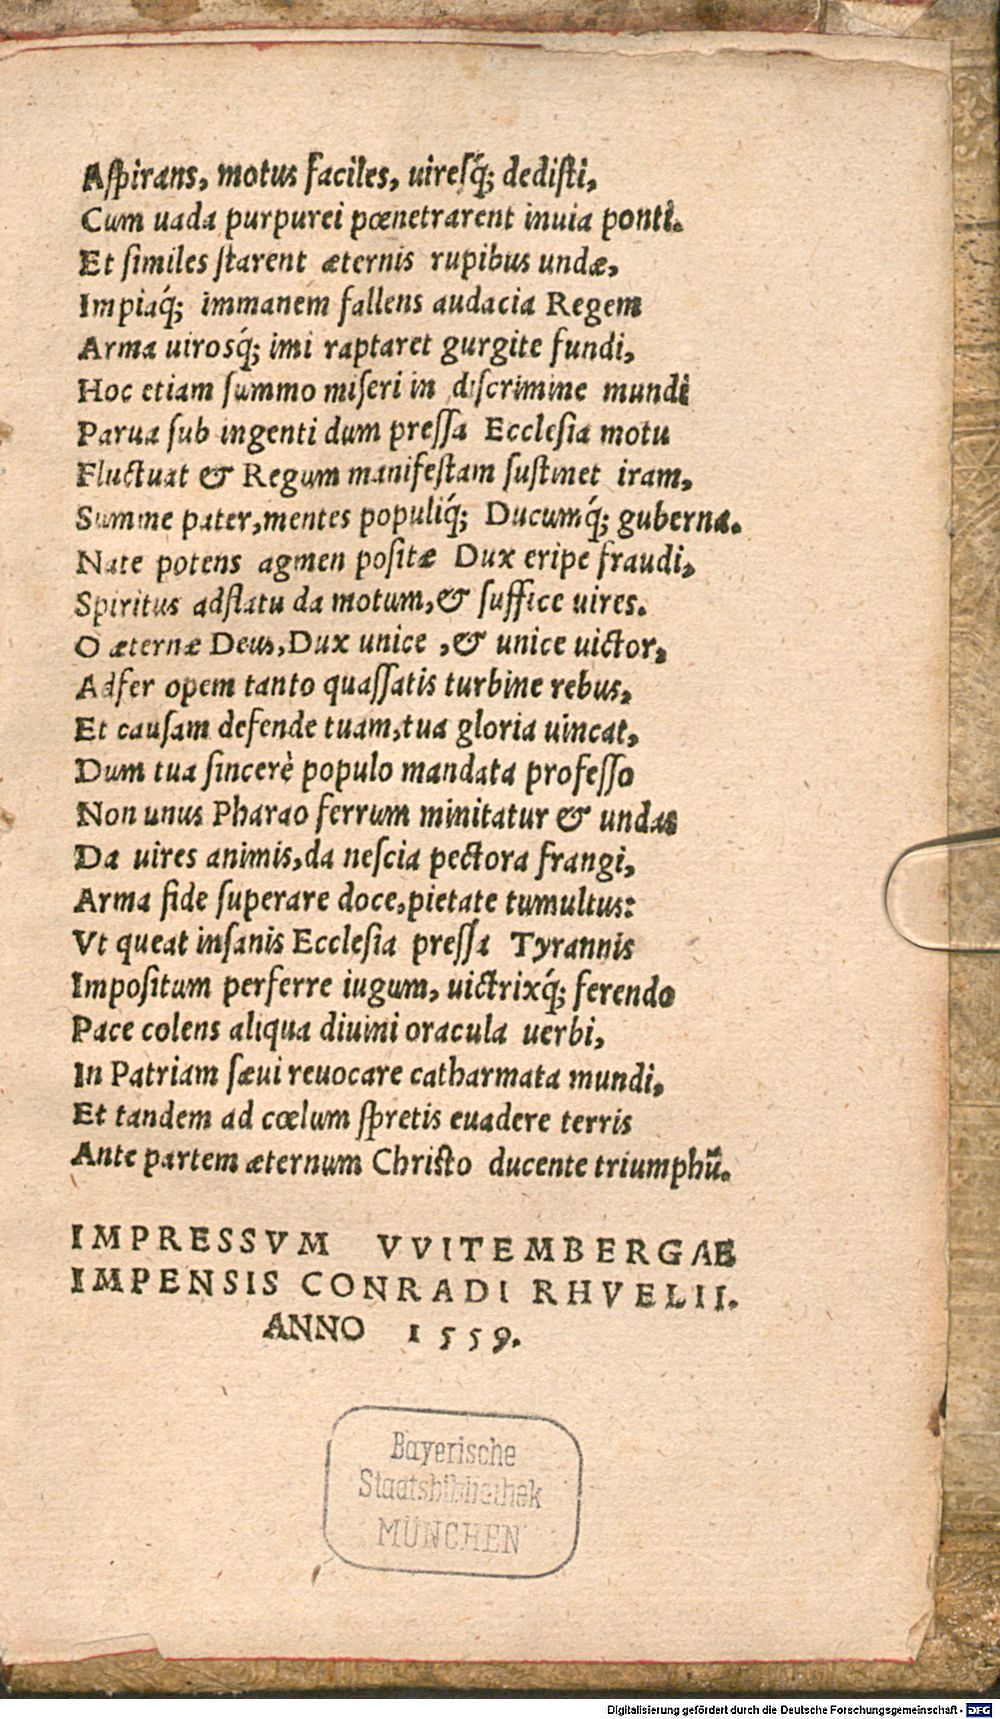 Aſpirans, motus faciles, uireſq́; dediſti,
Cum uada purpurei pœnetrarent inuia ponti.
Et ſimiles ſtarent æternis rupibus undæ,
Impiaq́; immanem fallens audacia Regem
Arma uirosq́; imi raptaret gurgite fundi,
Hoc etiam ſummo miſeri in diſcrimine mundi
Parua ſub ingenti dum preſſa Eccleſia motu
Fluctuat & Regum manifeſtam ſuſtinet iram,
Summe pater,mentes populiq́; Ducumq́; guberna.
Nate potens agmen poſitæ Dux eripe fraudi,
Spiritus adflatu da motum,& ſuffice uires.
O æternæ Deus,Dux unice ,& unice uictor,
Adfer opem tanto quaſſatis turbine rebus,
Et cauſam defende tuam,tua gloria uincat,
Dum tua ſincerè populo mandata profeſſo
Non unus Pharao ferrum minitatur & undas
Da uires animis,da neſcia pectora frangi,
Arma fide ſuperare doce,pietate tumultus:
Vt queat inſanis Eccleſia preſſa Tyrannis
Impoſitum perferre iugum, uictrixq́; ferendo
Pace colens aliqua diuini oracula uerbi,
In Patriam ſæui reuocare catharmata mundi,
Et tandem ad cœlum ſpretis euadere terris
Ante partem æternum Chriſto ducente triumphũ.
IMPRESSVM VVITEMBERGAE
IMPENSIS CONRADI RHVELII.
ANNO 1559.
Bayerische
Staatsbibliothek
MÜNCHEN
Digitalisierung gefördert durch die Deutsche Forschungsgemeinschaft - DFG